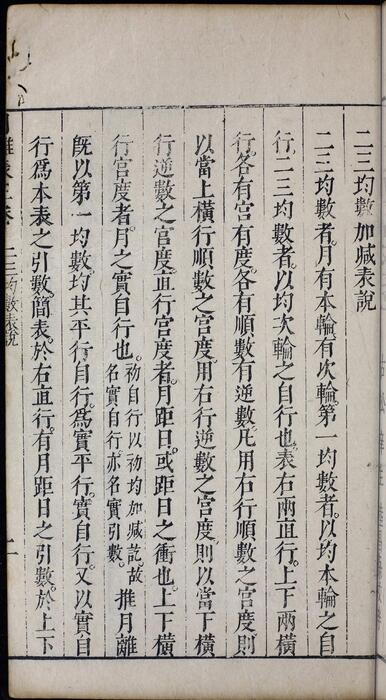 二三均數加減表說
二三均數者月有本輪有次輪第一均數者以均本輪之自
行二三均數者以均次輪之自行也表右兩直行上下兩橫
行各有宮有度各有順數有逆數凡用右行順數之宮度則
以當上橫行順數之宮度用右行逆數之宮度則以當下橫
行逆數之宮度直行宮度者月距日或距日之衝也上下橫
行宮度者月之實自行也
初自行以初均加減訖故
名實自行亦名實引數
推月離
既以第一均數均其平行自行為實平行實自行又以實自
行為本表之引數簡表於右直行有月距日之引數於上下
二三均數表說
一